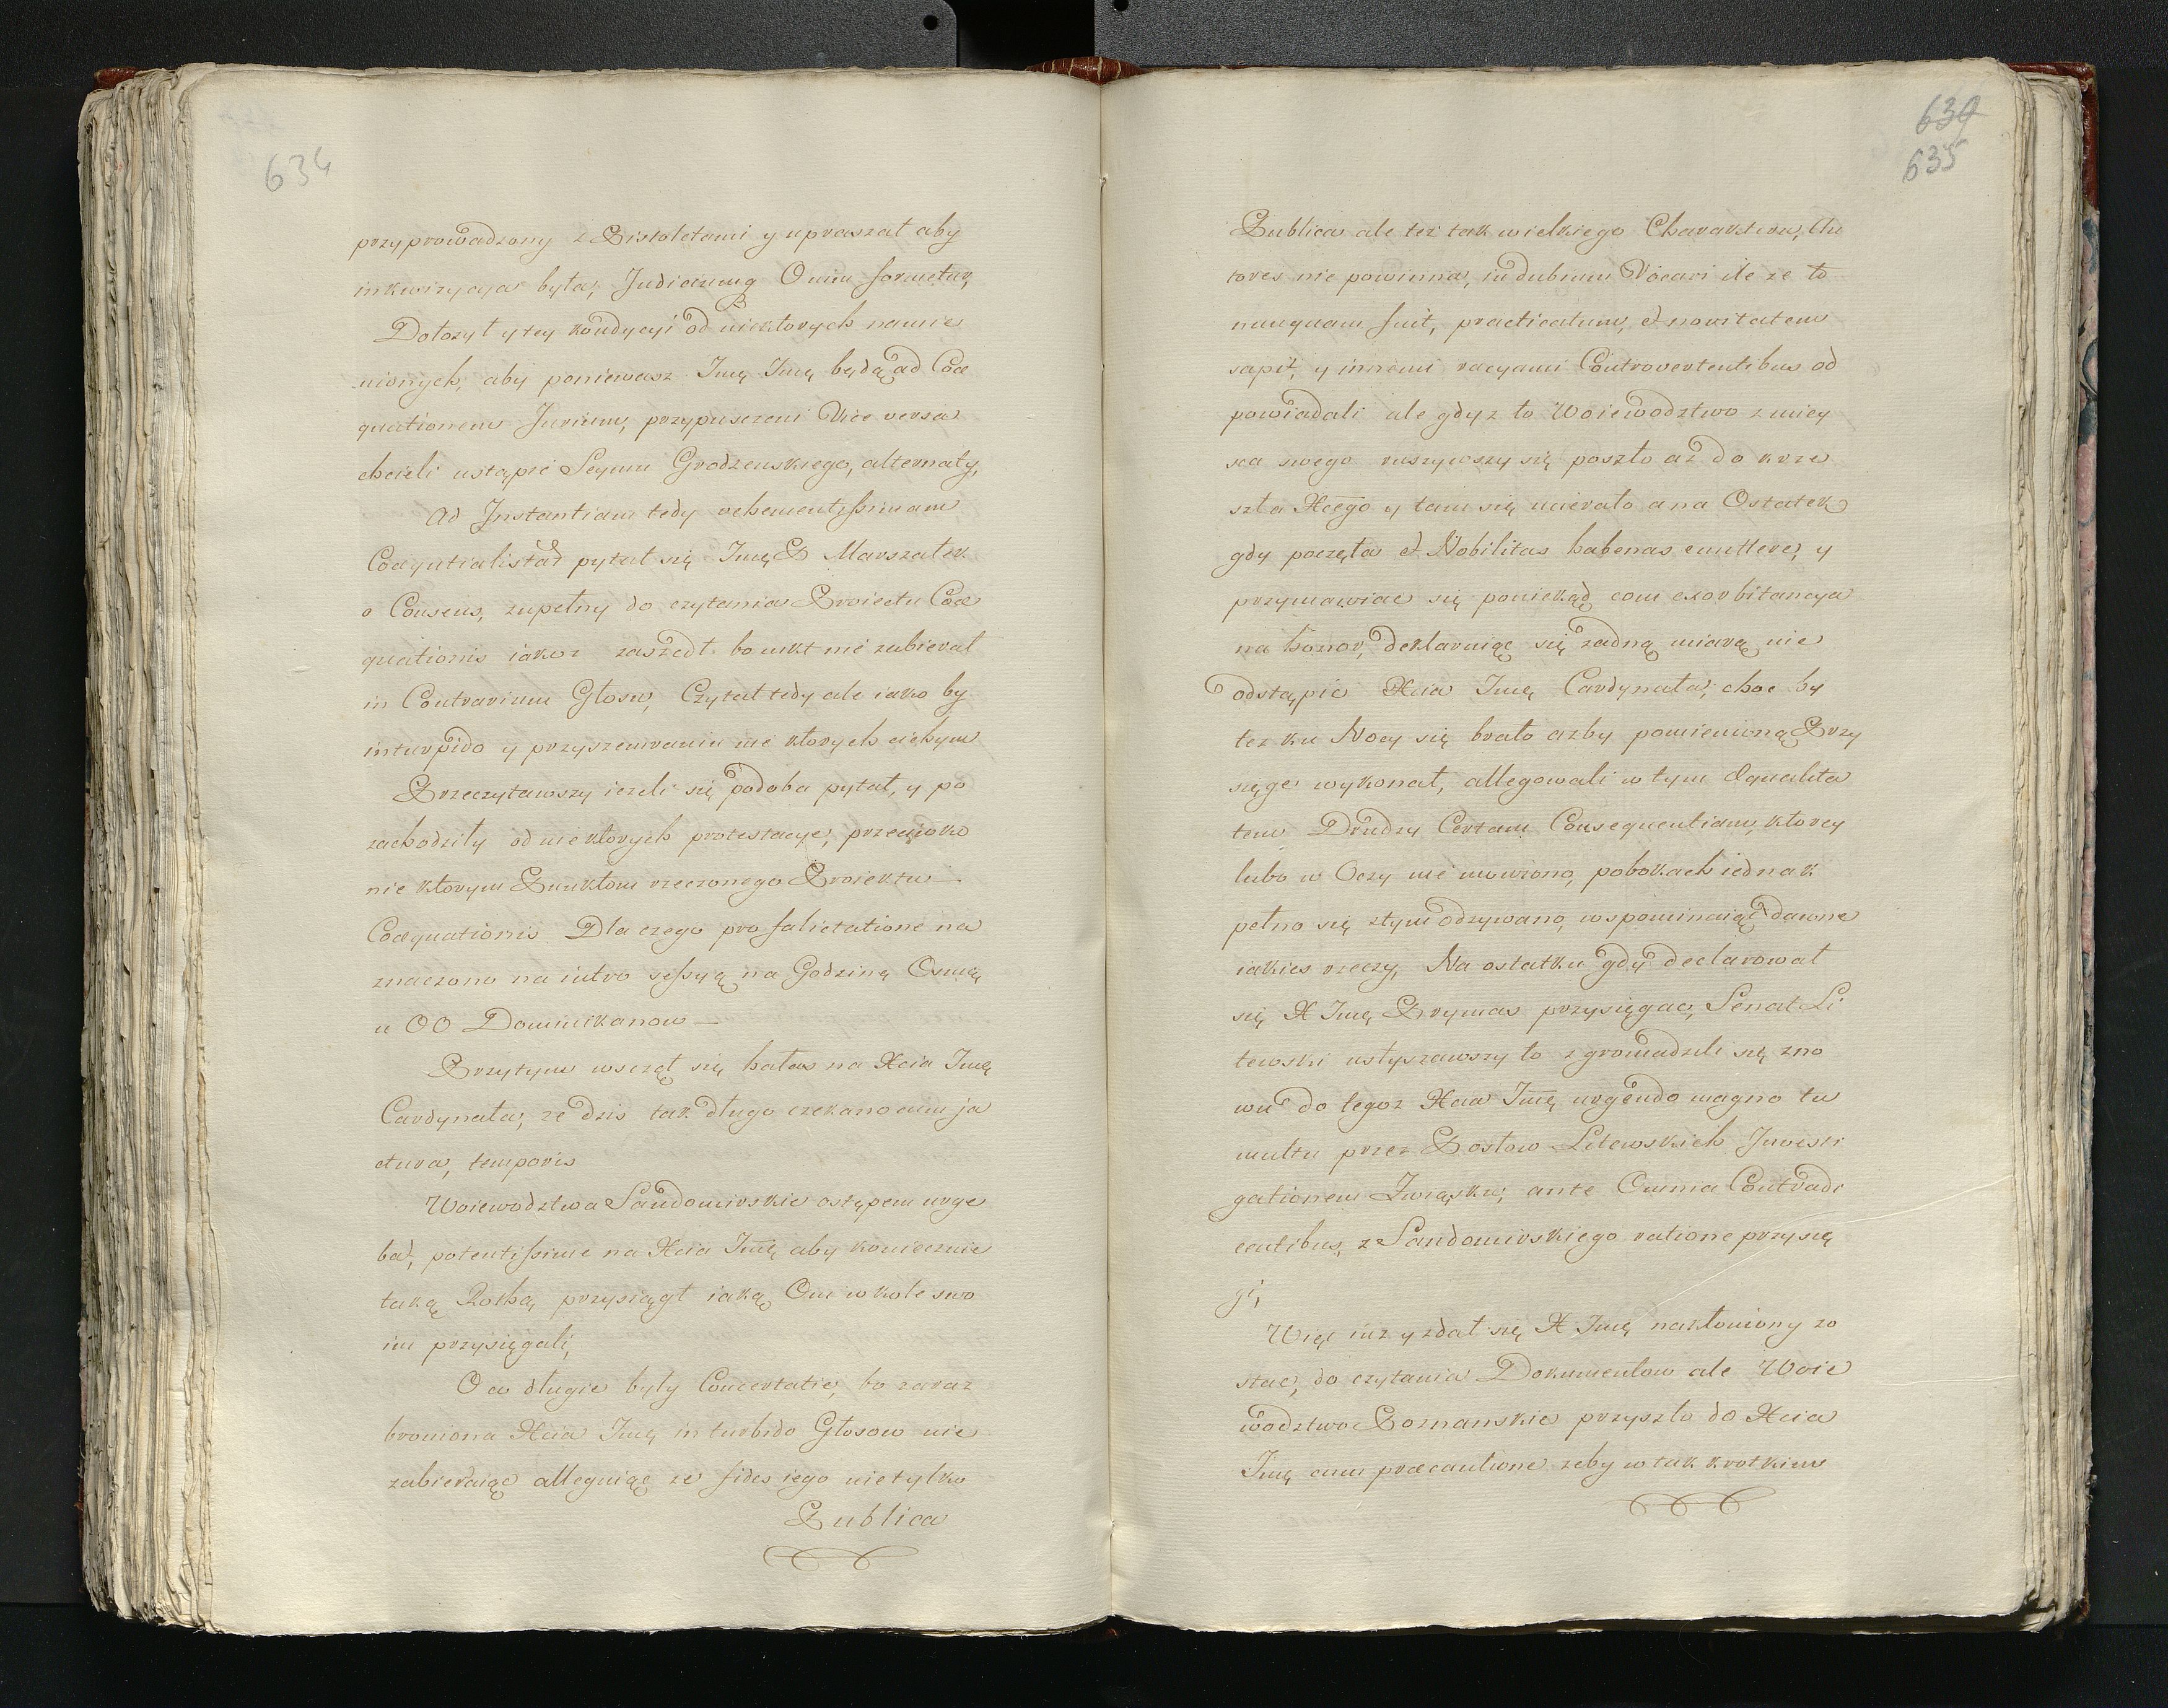 634
przyprowadzony z Pistoletami y upraszał aby
inkwizycya była, Judiciumq Onim formetur,
Dołożył y tey kondycyi od niektorych namie
nionych, aby poniewasz Imę Imę będą ad Coæ
quationem Jurium, przypuszczeni Vice versa
chcieli ustąpić Seymu Grodzenskiego, alternaty,
Ad Instantiam tedy vehementissimam
Coæqutialistar pytał się Imę P Marszałek
o Consens, zupełny do czytania Proiectu Coæ
quationis iakoz zaszedł bo nikt nie zabierał
in Contrarium Głosu, Czytał tedy ale iako by
inturpido y przyszemraniu nie ktorych cichym
Przeczytawszy iezeli się podoba pytał, y po
zachodziły od nie ktorych protestacye, przeciwko
nie ktorym Punktom rzeczonego Proiektu —
Coæquationis Dla czego pro falicitatione na
znaczono na iutro sessyą na Godzinę Osmą
u OO Dominikanow —
Przytym wszczął się hałas na Xcia Imę
Cardynała, ze dzis tak długo czekano cum ja
ctura, temporis
Woiewodztwa Sandomirskie ostępem urge
bat, potentissime na Xcia Imę aby koniecznie
taką Rothą przysiągł iaką Oni w kole swo
im przysięgali,
O co długie były Concertatie, bo zaraz
broniona Xcia Imę in turbido Głosow nie
zabieraiąc alleguiąc ze fides iego nie tylko
Publica
639
635
Publica ale też tak wielkiego Charakteru, Au
tores nie powinna, in dubium Vocari ile ze to
nunquam fuit, practicatum, et novitatem
sapit, y innemi racyami Controvertentibus od
powiadali ale gdyz to Woiewodztwo z miey
sca swego ruszywszy się poszło aż do krze
szła Xcego y tam się ucierało a na Ostatek
gdy poczęła et Nobilitas habenas emittere, y
przymawiac się poniekąd com exorbitancya
na honor, deklaruiąc się żadną miarą nie
odstąpić Xcia Imę Cardynała, choc by
tez ku Nocy się brało azby pomienioną Przy
sięge wykonał, allegowali w tym Æqualita
tem Drudzy Certam Consequentiam, ktorey
lubo w Oczy nie mowiono, pobokach iednak
pełno się ztym odzywano, wspominaiąc dawne
iakies rzeczy, Na ostatku gdy declarował
się X Imę Prymas przysięgac, Senat Li
tewski usłyszawszy to zgromadzili się zno
wu do tegoz Xcia Imę urgendo magno tu
multu przez Posłow Litewskich Investi
gationem Zwiąsku, ante Omnia Contradi
centibus, z Sandomirskiego ratione przysię
gi,
Więc iuz y zdał się X Imę nakłoniony zo
stac, do czytania Dokumentow ale Woie
wodztwo Poznanskie przyszło do Xcia
Imę cum præcautione zeby w tak krotkim